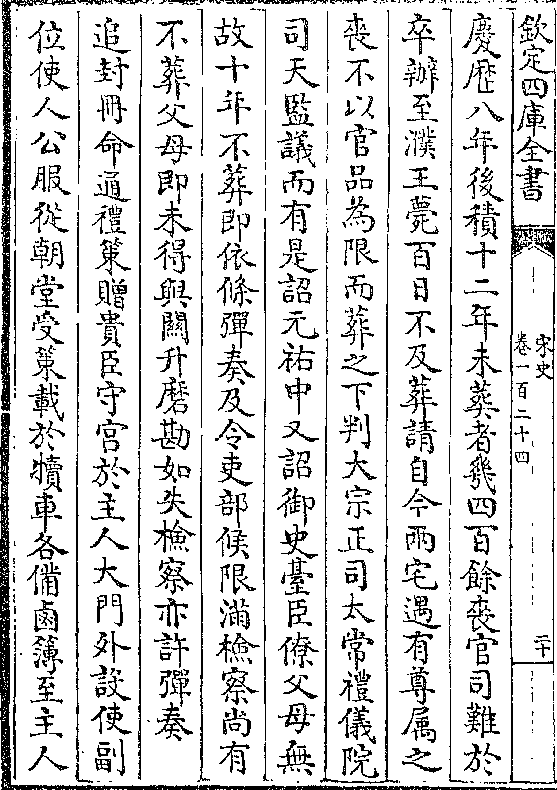 欽定四庫全書
宋史
卷一百二十四
二十
慶厯八年後積十二年未葬者幾四百餘喪官司難於
卒辦至濮王薨百日不及葬請自今兩宅遇有尊属之
喪不以官品為限而葬之下判大宗正司太常禮儀院
司天監議而有是詔元祐中又詔御史臺臣僚父母無
故十年不葬即依條彈奏及令吏部候限滿檢察尚有
不葬父母即未得與關升磨勘如失檢察亦許彈奏
追封冊命通禮策贈貴臣守宫於主人大門外設使副
位使人公服從朝堂受策載於犢車各備鹵簿至主人